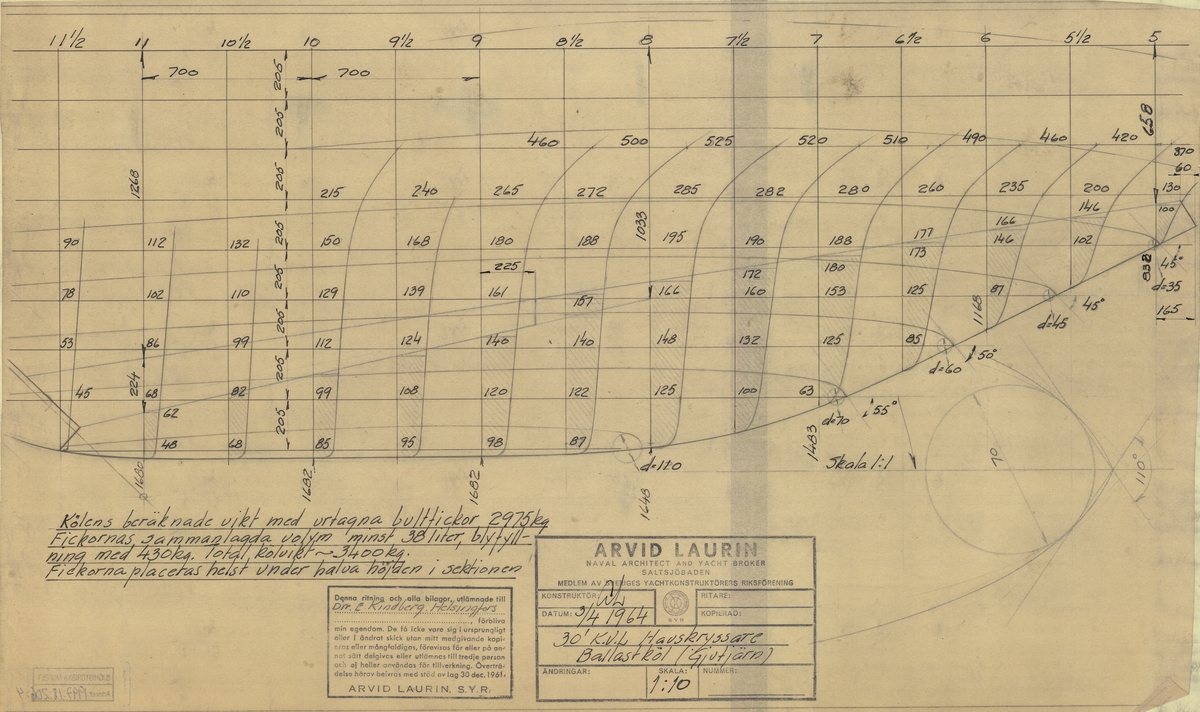 11 1/2 11 10 1/2 10 9 1/2 9 8 1/2 8 7 1/2 7 6 1/2 6 5 1/2 5
700 700
205 205 205 205 205 205 205 205
658
460 500 525 520 510 490 460 420 370
60
1268
215 240 265 272 285 282 280 260 235 200 130
146 100
1033
166
90 112 132 150 168 180 188 195 190 188 177 146 102
173
225 172 180 45° 838
78 102 110 129 139 161 157 166 160 153 125 87 d=35
1168 45° 165
d=45
53 86 99 112 124 140 140 148 132 125 85
50°
224 d=60
45 68 82 99 108 120 122 125 100 63
62 d=70 55°
48 68 85 95 98 87
d=120 1483 Skala 1:1 70 110°
1680 1682 1682 1648
Kölens beräknade vikt med urtagna bultfickor 2975 kg
Fickornas sammanlagda volym minst 38 liter, blyfyll-
ning med 430 kg. Total kölvikt ~ 3400 kg.
Fickorna placeras helst under halva höjden i sektionen
Denna ritning och alla bilagor, utlämnade till
Dir. E. Kindberg, Helsingfors
förbliva
min egendom. De få icke vare sig i ursprungligt
eller i ändrat skick utan mitt medgivande kopi-
eras eller mångfaldigas, förevisas för eller på an-
nat sätt delgivas eller utlämnas till tredje person
och ej heller användas för tillverkning. Överträ-
delse härav beivras med stöd av lag 30 dec. 1961.
ARVID LAURIN, S.Y.R.
ARVID LAURIN
NAVAL ARCHITECT AND YACHT BROKER
SALTSJÖBADEN
MEDLEM AV SVERIGES YACHTKONSTRUKTÖRERS RIKSFÖRENING
KONSTRUKTÖR: RITARE:
DATUM: 3/4 1964 SYR KOPIERAD:
30' K.V.L Havskryssare
Ballastköl (Gjutjärn)
ÄNDRINGAR: SKALA: NUMMER:
1:10